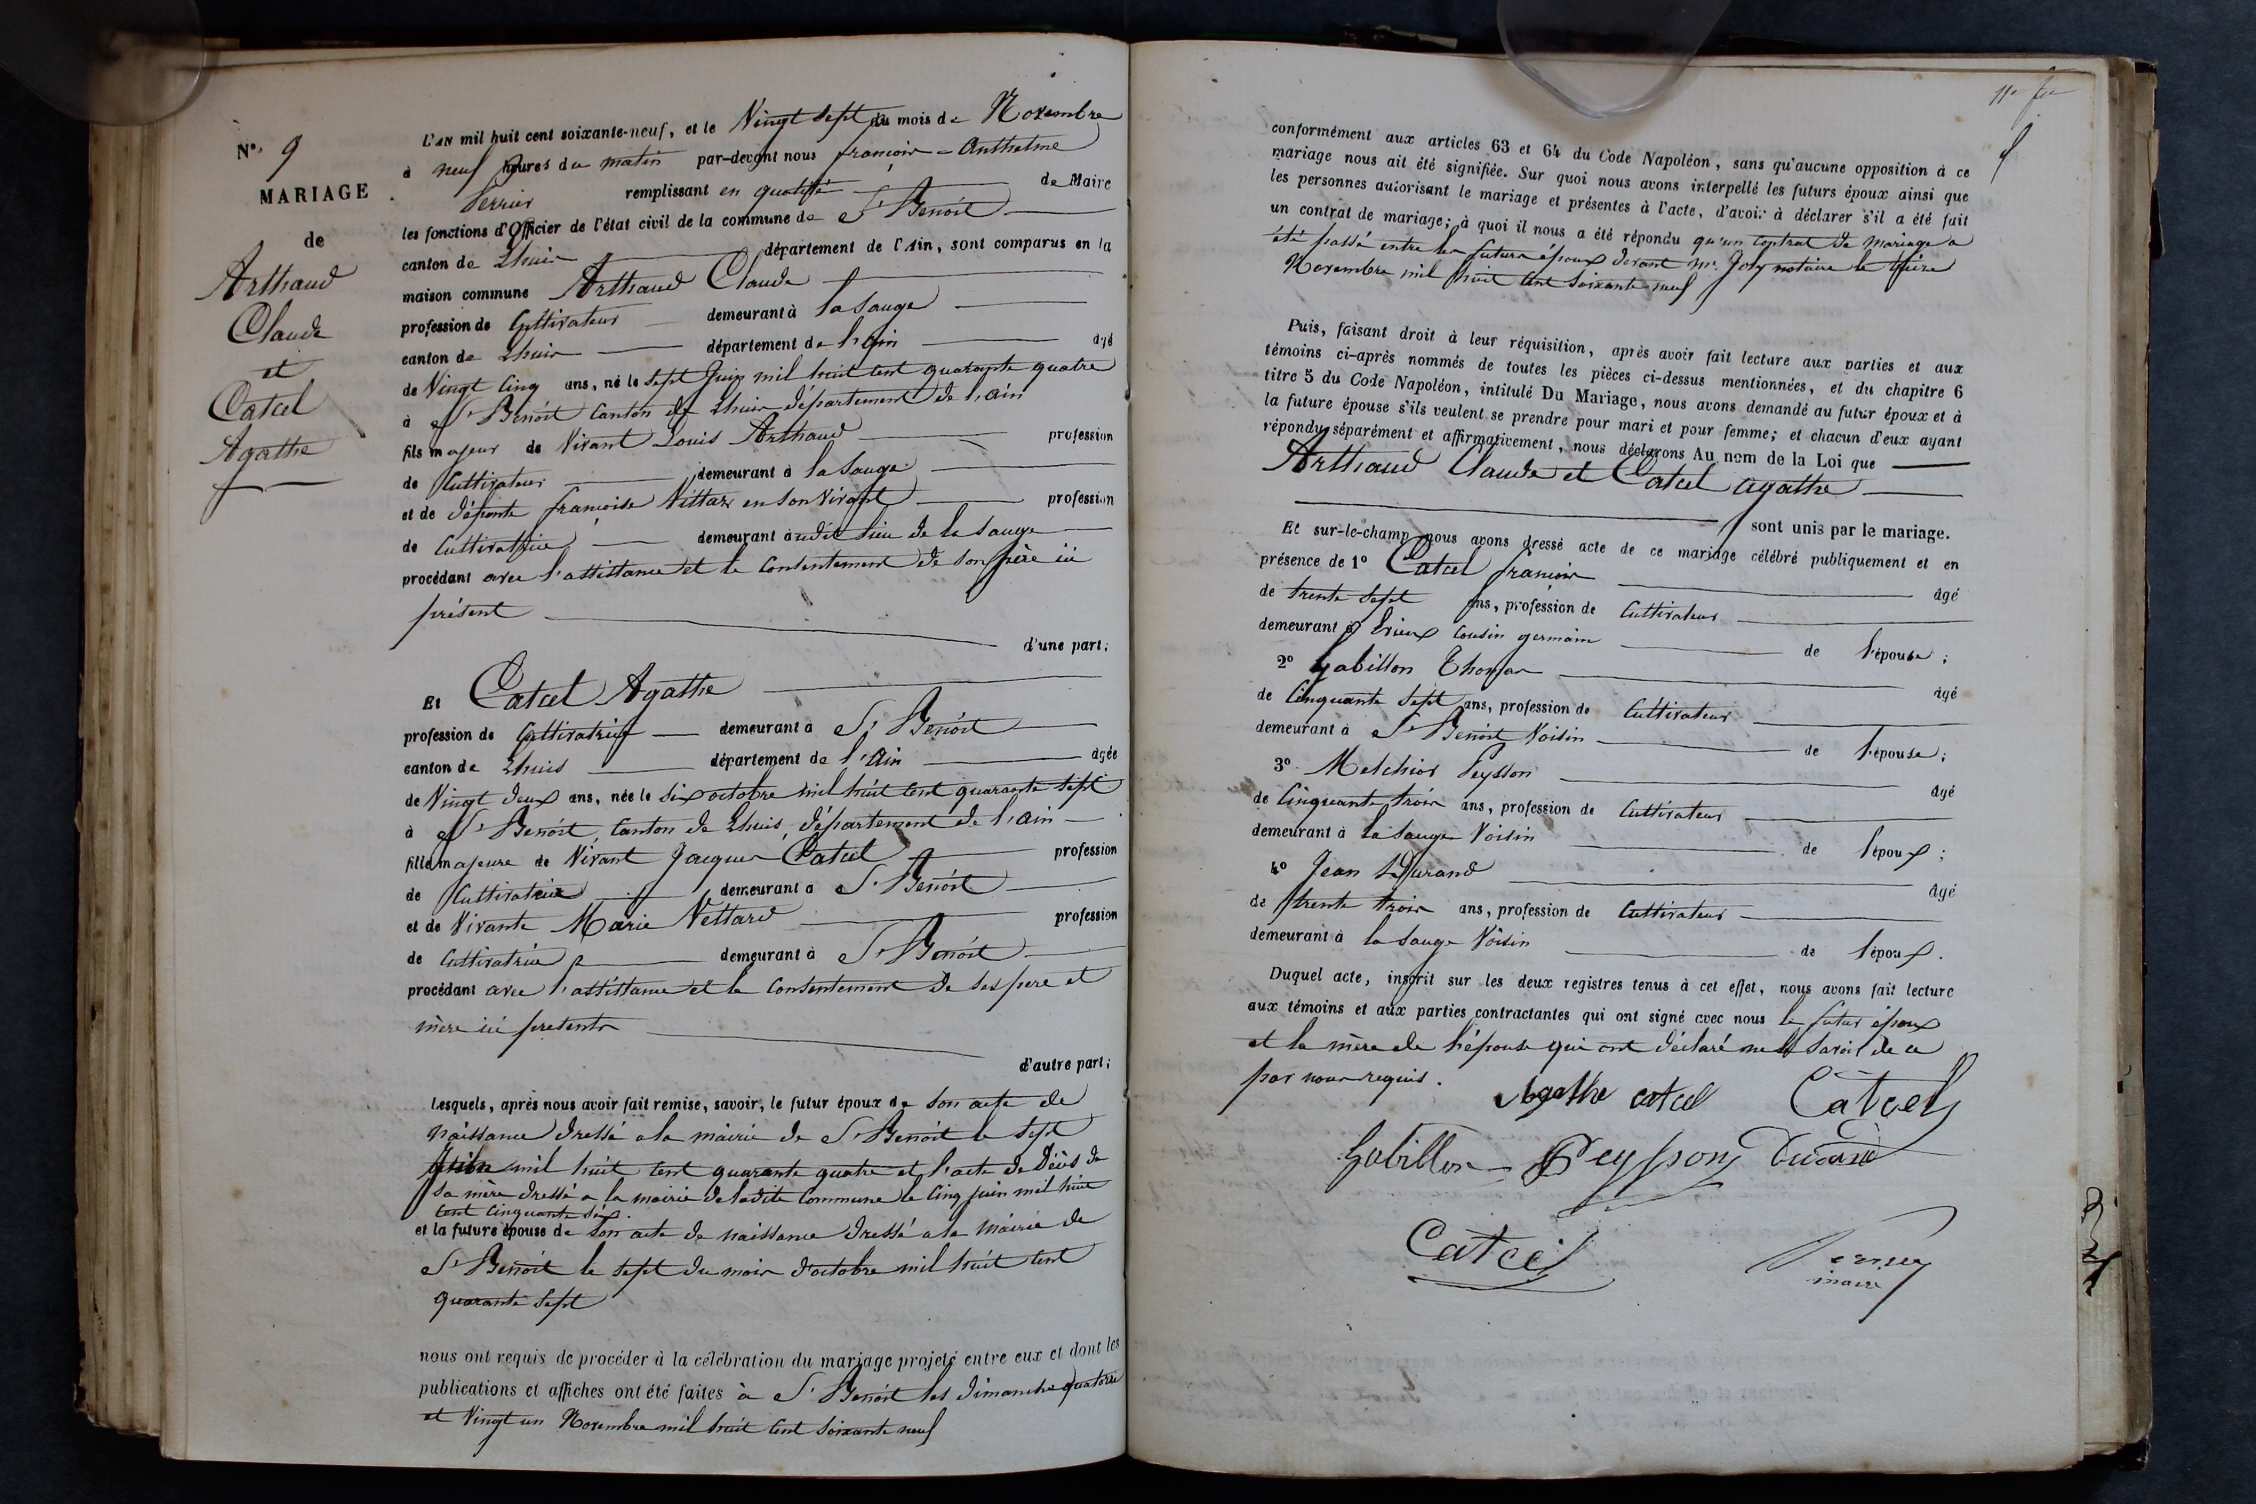 N° 9
MARIAGE
de
Arthaud
Claude
et
Catcel
Agathe
L'AN mil huit cent soixante-neuf, et le Vingt sept du mois de Novembre
à neuf heures du matin par-devant nous françois-Anthelme
Perrier remplissant en qualité de Maire
les fonctions d'Officier de l'état civil de la commune de St Benoit
canton de Lhuis département de l'Ain, sont comparus en la
maison commune Arthaud Claude
profession de Cultivateur demeurant à la Sauge
canton de Lhuis département de l'ain âgé
de Vingt Cinq ans, né le sept Juin mil huit cent quarante quatre
à St Benoit Canton de Lhuis département de l'ain
fils majeur de Vivant Louis Arthaud profession
de Cultivateur demeurant à la Sauge
et de défunte françoise Vittaz en son vivant profession
de Cultivatrice demeurant audit lieu de la Sauge
procédant avec l'assistance et le Consentement de son père ici
présent
d'une part;
Et Catcel Agathe
profession de Cultivatrice demeurant à St Benoit
canton de Lhuis département de l'Ain âgée
de Vingt deux ans, née le six octobre mil huit cent quarante sept
à St Benoit, Canton de Lhuis, département de l'ain
fille majeure de Vivant Jacques Catcel profession
de Cultivateur demeurant à St Benoit
et de Vivante Marie Vettard profession
de Cultivatrice demeurant à St Benoit
procédant avec l'assistance et le Consentement de ses père et
mère ici présents
d'autre part;
Lesquels, après nous avoir fait remise, savoir, le futur époux de son acte de
naissance dressé a la mairie de St Benoit le sept
mil huit cent quarante quatre et l'acte de Décès de
sa mère dressé a la mairie de ladite Commune le Cinq juin mil huit
cent cinquante six.
et la future épouse de son acte de naissance dressé a la mairie de
St Benoit le sept du mois d'octobre mil huit cent
quarante sept
nous ont requis de procéder à la célébration du mariage projeté entre eux et dont les
publications et affiches ont été faites à St Benoit les dimanches quatorze
et Vingt un Novembre mil huit cent soixante neuf
conformément aux articles 63 et 64 du Code Napoléon, sans qu'aucune opposition à ce
mariage nous ait été signifiée. Sur quoi nous avons interpellé les futurs époux ainsi que
les personnes autorisant le mariage et présentes à l'acte, d'avoir à déclarer s'il a été fait
un contrat de mariage; à quoi il nous a été répondu qu'un Contrat de mariage a
été passé entre les futurs époux devant Mr. Joly notaire le treize
Novembre mil huit cent soixante neuf
Puis, faisant droit à leur réquisition, après avoir fait lecture aux parties et aux
témoins ci-après nommés de toutes les pièces ci-dessus mentionnées, et du chapitre 6
titre 5 du Code Napoléon, intitulé Du Mariage, nous avons demandé au futur époux et à
la future épouse s'ils veulent se prendre pour mari et pour femme; et chacun d'eux ayant
répondu séparément et affirmativement, nous déclarons Au nom de la Loi que
Arthaud Claude et Catcel Agathe
sont unis par le mariage.
Et sur-le-champ nous avons dressé acte de ce mariage célébré publiquement et en
présence de 1° Catcel françois âgé
de trente sept ans, profession de Cultivateur
demeurant à Crieux Cousin germain de l'épouse;
2° Gabillon Thomas âgé
de Cinquante Sept ans, profession de Cultivateur
demeurant à St Benoit Voisin de l'épouse;
3° Melchior Peysson âgé
de Cinquante trois ans, profession de Cultivateur
demeurant à la Sauge Voisin de l'époux;
4° Jean Durand âgé
de trente trois ans, profession de Cultivateur
demeurant à la Sauge Voisin de l'époux.
Duquel acte, inscrit sur les deux registres tenus à cet effet, nous avons fait lecture
aux témoins et aux parties contractantes qui ont signé avec nous le futur époux
et la mère de l'épouse qui ont déclaré ne le savoir de ce
par nous requis.
Agathe catcel Catcel
Gabillon Peysson Durand
Catcel Perrier
maire